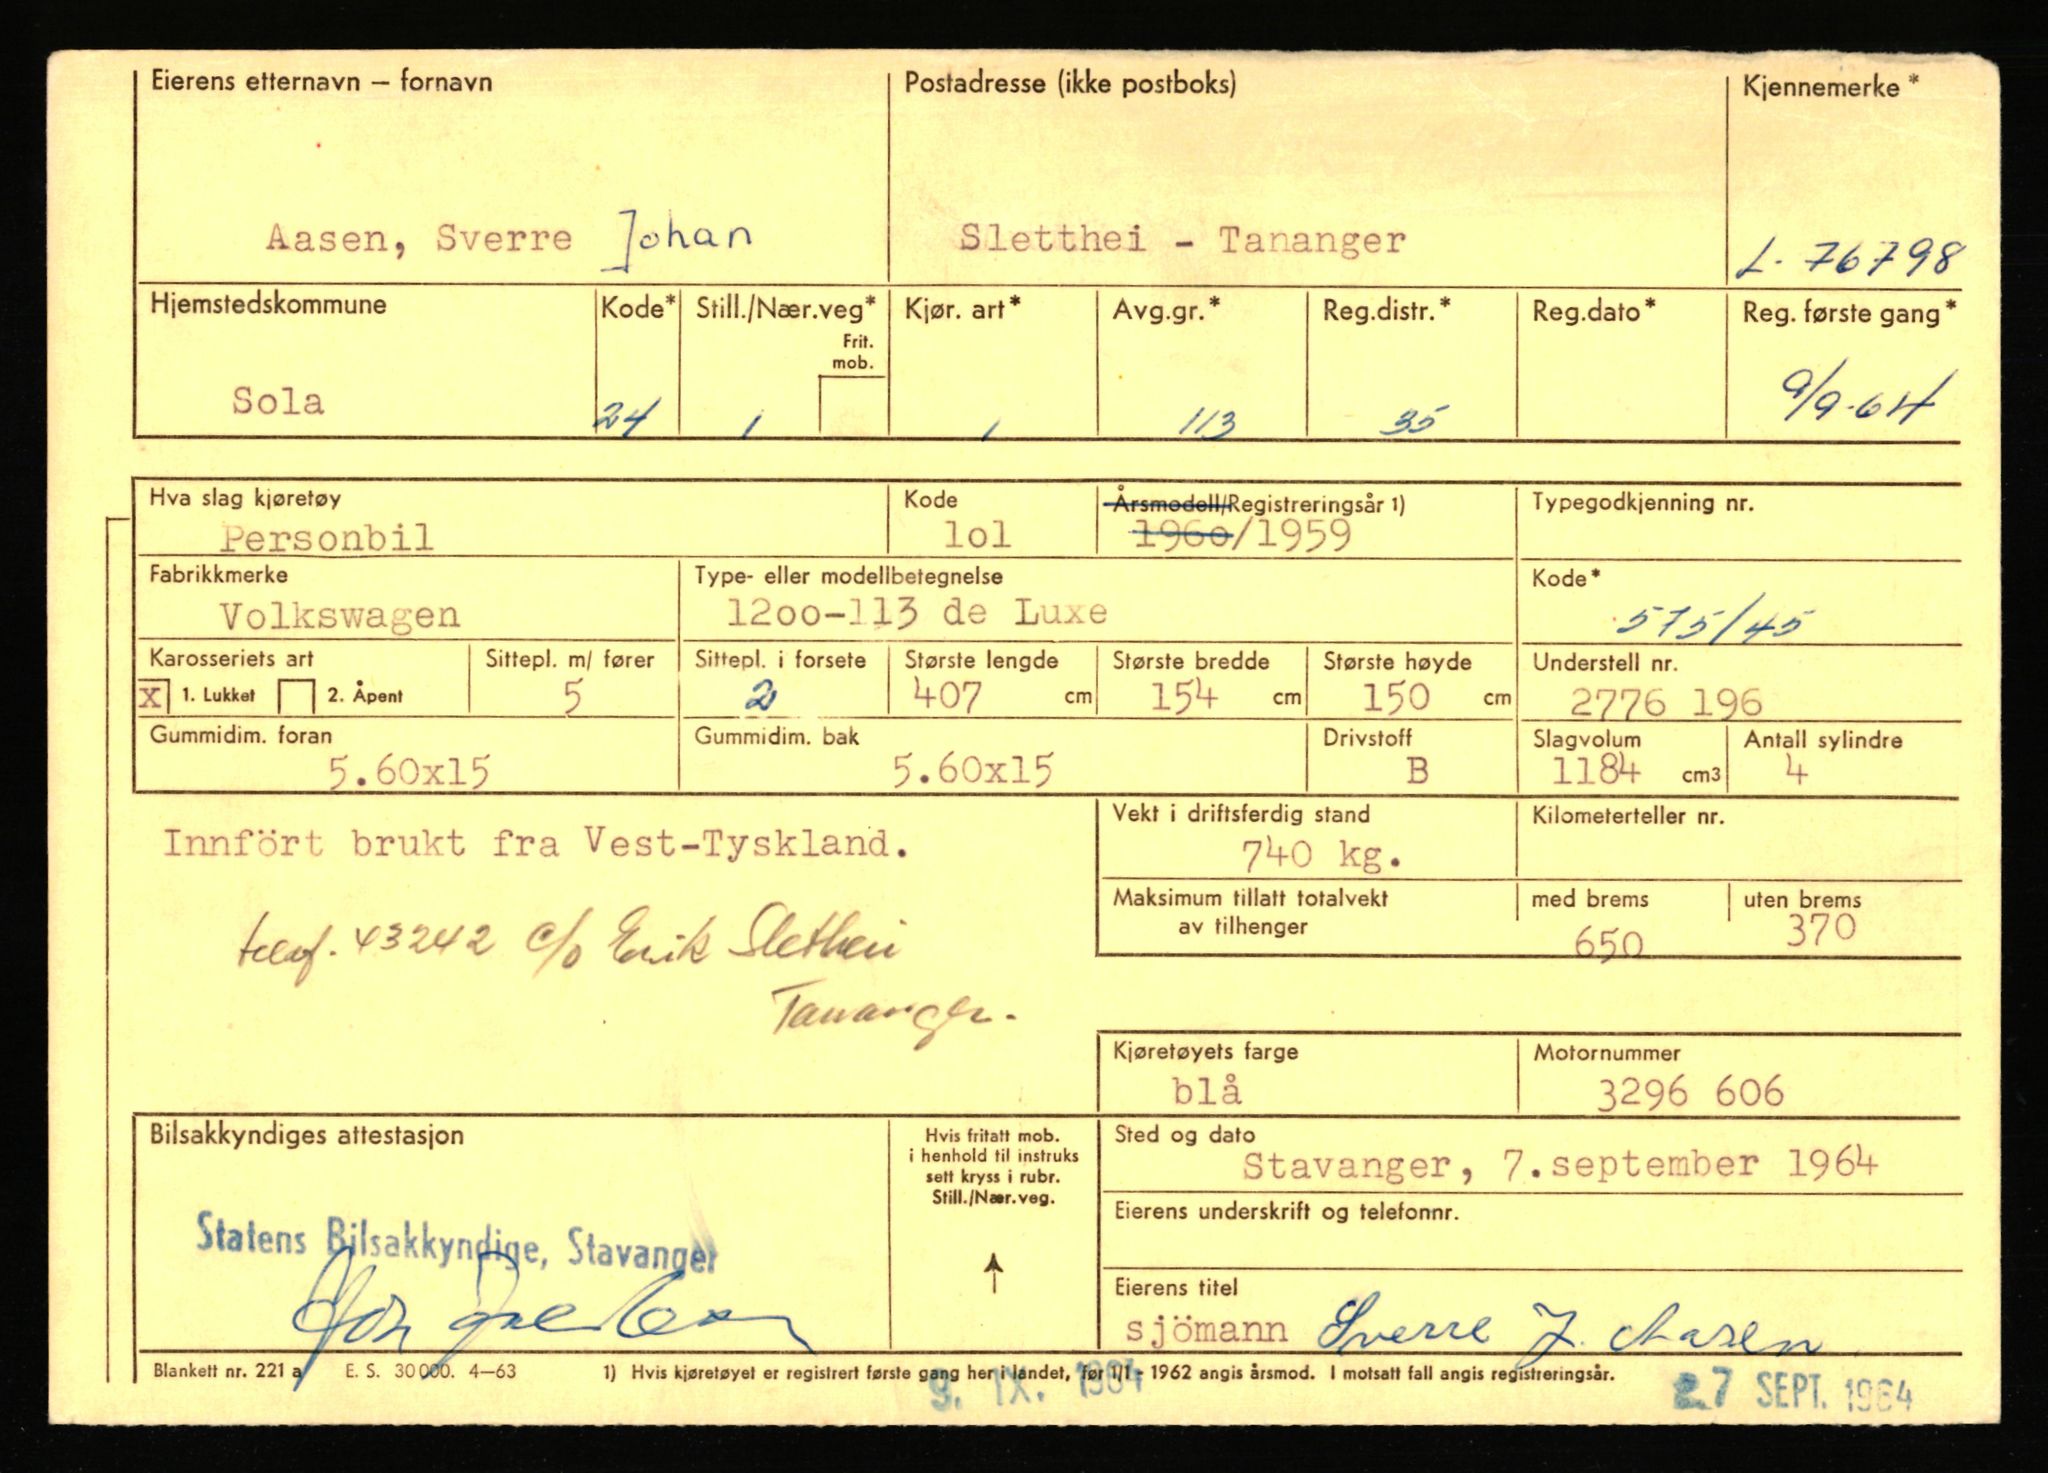 Eierens etternavn – fornavn Postadresse (ikke postboks) Kjennemerke*
Aasen, Sverre Johan Sletthei - Tananger L-76798
Hjemstedskommune Kode* Still./Nær.veg* Kjør. art* Avg.gr.* Reg.distr.* Reg.dato* Reg. første gang*
Frit.
mob.
Sola 24 1 1 113 35 9/9-64
Hva slag kjøretøy Kode Årsmodell/Registreringsår 1) Typegodkjenning nr.
Personbil lol 196o/1959
Fabrikkmerke Type- eller modellbetegnelse Kode*
Volkswagen 12oo-113 de Luxe 575/45
Karosseriets art Sittepl. m/ fører Sittepl. i forsete Største lengde Største bredde Største høyde Understell nr.
X 1. Lukket 2. Åpent 5 2 407 cm 154 cm 150 cm 2776 196
Gummidim. foran Gummidim. bak Drivstoff Slagvolum Antall sylindre
5.60x15 5.60x15 B 1184 cm3 4
Vekt i driftsferdig stand Kilometerteller nr.
Innfört brukt fra Vest-Tyskland. 740 kg.
Maksimum tillatt totalvekt med brems uten brems
av tilhenger 650 370
telef. 43242 c/o Erik Slethei
Tananger.
Kjøretøyets farge Motornummer
blå 3296 606
Bilsakkyndiges attestasjon Hvis fritatt mob. Sted og dato
i henhold til instruks
sett kryss i rubr.
Still./Nær.veg.
Stavanger, 7.september 1964
Eierens underskrift og telefonnr.
Statens Bilsakkyndige, Stavanger
Eierens titel
sjömann Sverre J. Aasen
Blankett nr. 221 a E. S. 30 000. 4–63 1) Hvis kjøretøyet er registrert første gang her i landet, før 1/1 - 1962 angis årsmod. I motsatt fall angis registreringsår.
9. IX. 1964 27 SEPT. 1964